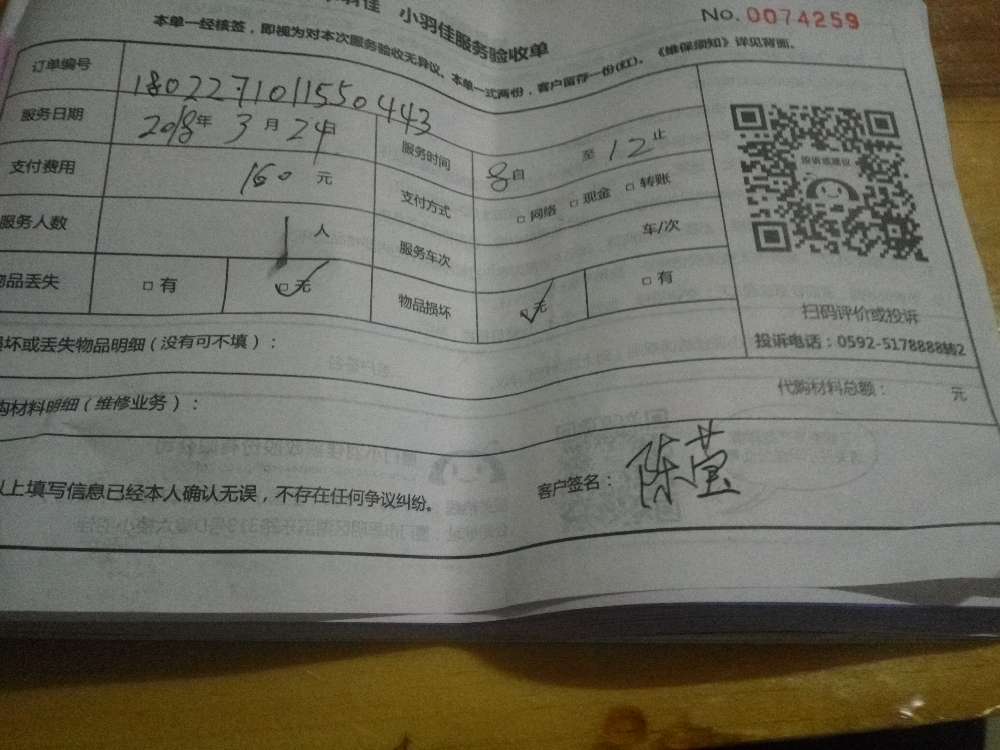 羽佳 小羽佳服务验收单
No. 0074259
本单一经核签，即视为对本次服务验收无异议。本单一式两份，客户留存一份(红)。《维保须知》详见背面。
订单编号 180227101155​0443
服务日期 2018年 3月 24日 服务时间 8自 至 12止
支付费用 160 元 支付方式 □ 网络 □ 现金 □ 转账
服务人数 1人 服务车次 车/次
物品丢失 □ 有 □ 无 物品损坏 □ 无 □ 有
投诉或建议
扫码评价或投诉
投诉电话：0592-5178888转2
坏或丢失物品明细（没有可不填）：
购材料明细（维修业务）： 代购材料总额： 元
以上填写信息已经本人确认无误，不存在任何争议纠纷。 客户签名： 陈莹